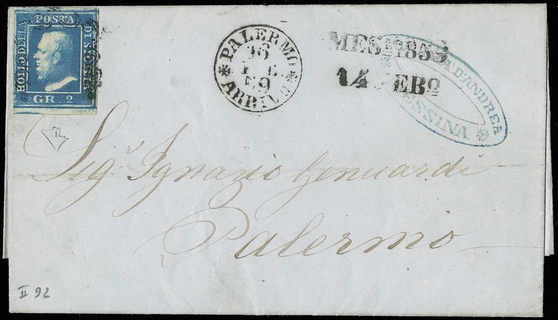 BOLLO DELLA POSTA DI SICILIA
GR. 2
PALERMO
16
FEB
59
ARRIVO
MES 1859
14 FEBº
D'ANDREA
MESSINA
Sigr Ignazio Genuardi
Palermo
II 92